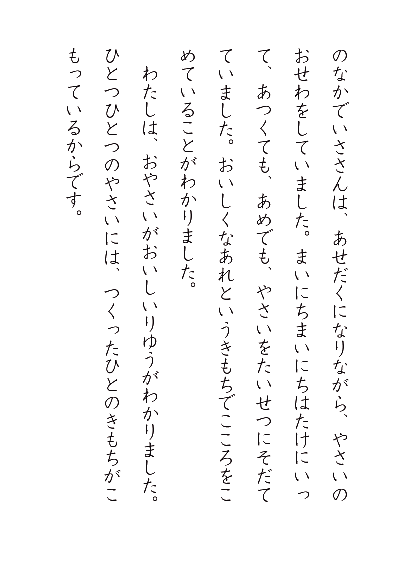 のなかでいささんは、あせだくになりながら、やさいの
おせわをしていました。まいにちまいにちはたけにいっ
て、あつくても、あめでも、やさいをたいせつにそだて
ていました。おいしくなあれというきもちでこころをこ
めていることがわかりました。
　わたしは、おやさいがおいしいりゆうがわかりました。
ひとつひとつのやさいには、つくったひとのきもちがこ
もっているからです。